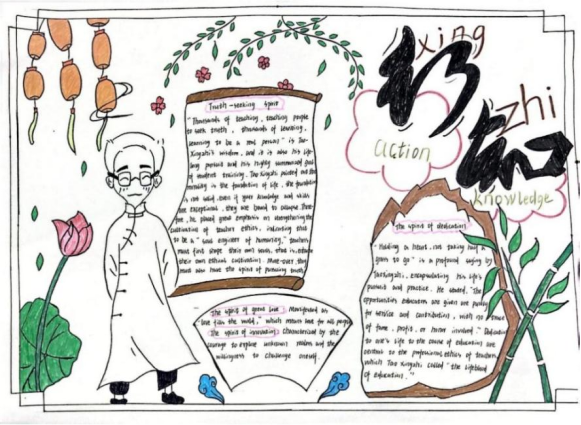 xing
行
action
zhi
知
knowledge
Truth-seeking Spirit
"Thousands of teaching, teaching people
to seek truth, thousands of learning,
learning to be a real person" is Tao
Xingzhi's wisdom, and it is also his life-
long pursuit and his highly summarized goal
of students training. Tao Xingzhi pointed out that
morality is the foundation of life, the foundation
is not solid, even if your knowledge and skills
are exceptional, they are bound to collapse there-
fore, he placed great emphasis on strengthening the
cultivation of teacher ethics, indicating that
to be a "soul engineer of humanity," teachers
must first shape their own souls, that is, enhance
their own ethical cultivation. Moreover, they
must also have the spirit of pursuing truth
The spirit of great love Manifested as
love for the world," which means love for all people
The spirit of innovation: characterized by the
courage to explore unknown realms and the
willingness to challenge oneself.
The spirit of dedication
"Holding a heart, not taking half a
grass to go" is a profound saying by
Tao Xingzhi, encapsulating his life's
pursuit and practice. He stated, "the
opportunities educators are given are purely
for service and contribution, with no
of fame, profit, or honor involved." Dedication
to one's life to the cause of education are
the professional ethics of teachers,
which Tao Xingzhi called "the lifeblood
of education."